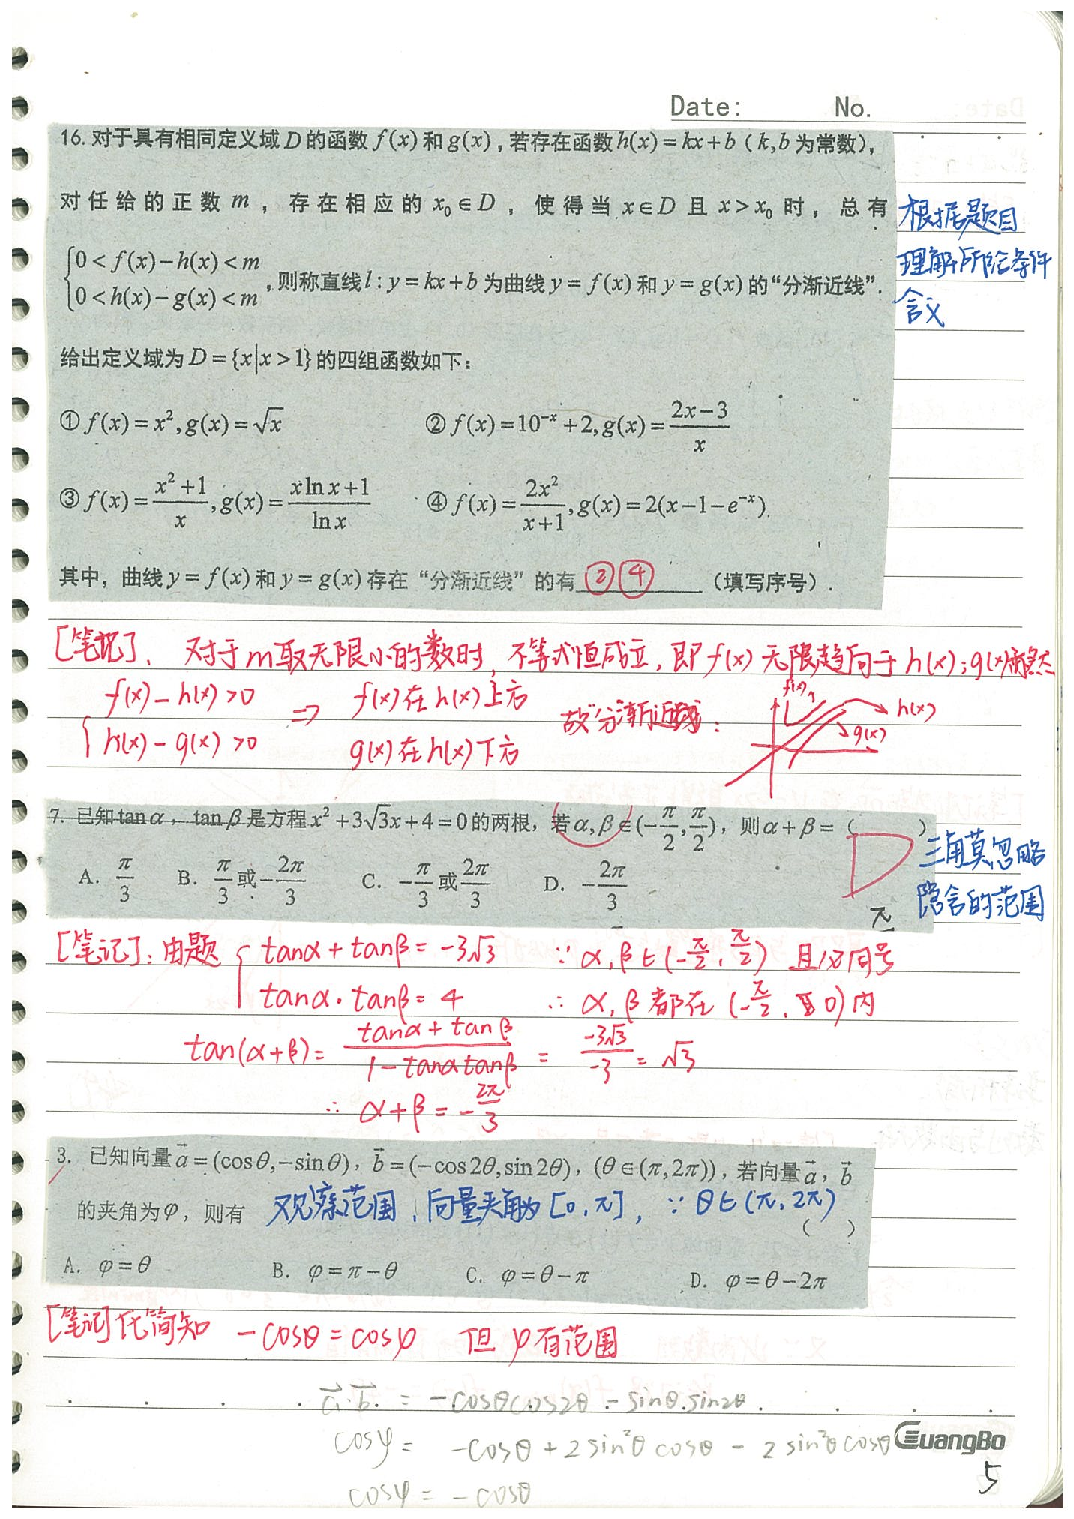 Date: No.
16. 对于具有相同定义域 D 的函数 f(x) 和 g(x), 若存在函数 h(x) = kx + b ( k, b 为常数),
对任给的正数 m, 存在相应的 x₀ ∈ D, 使得当 x ∈ D 且 x > x₀ 时, 总有
{0 < f(x) − h(x) < m
{0 < h(x) − g(x) < m , 则称直线 l : y = kx + b 为曲线 y = f(x) 和 y = g(x) 的“分渐近线”.
根据题目
理解所给条件
含义
给出定义域为 D = {x|x > 1} 的四组函数如下:
① f(x) = x², g(x) = √x ② f(x) = 10⁻ˣ + 2, g(x) = (2x−3)/x
③ f(x) = (x²+1)/x, g(x) = (x ln x + 1)/ln x ④ f(x) = 2x²/(x+1), g(x) = 2(x − 1 − e⁻ˣ).
其中, 曲线 y = f(x) 和 y = g(x) 存在“分渐近线”的有 ② ④ (填写序号).
[笔记]. 对于m取无限小的数时, 不等式恒成立, 即 f(x) 无限趋向于 h(x); g(x)亦然
{ f(x) − h(x) > 0 ⇒ f(x) 在 h(x) 上方
h(x) − g(x) > 0 g(x) 在 h(x) 下方
故分渐近线:
f(x) h(x)
g(x)
7. 已知 tan α, tan β 是方程 x² + 3√3x + 4 = 0 的两根, 若 α, β ∈ (−π/2, π/2), 则 α + β = ( )
A. π/3 B. π/3 或 −2π/3 C. −π/3 或 2π/3 D. −2π/3
D
三角莫忽略
隐含的范围
[笔记]: 由题 { tanα + tanβ = −3√3 ∵ α, β ∈ (−π/2, π/2) 且必同号
tanα · tanβ = 4 ∴ α, β 都在 (−π/2, 0) 内
tan(α+β) = (tanα + tanβ)/(1 − tanαtanβ) = −3√3/−3 = √3
∴ α + β = −2π/3
3. 已知向量 a⃗ = (cosθ, −sinθ), b⃗ = (−cos2θ, sin2θ), (θ ∈ (π, 2π)), 若向量 a⃗, b⃗
的夹角为 φ, 则有 ( )
观察范围, 向量夹角为 [0, π], ∵ θ ∈ (π, 2π)
A. φ = θ B. φ = π − θ C. φ = θ − π D. φ = θ − 2π
[笔记] 化简知 −cosθ = cosφ 但 φ 有范围
a⃗·b⃗ = −cosθcos2θ − sinθ.sin2θ
cosφ = −cosθ + 2sin²θ cosθ − 2sin²θ cosθ
cosφ = −cosθ
GuangBo
5